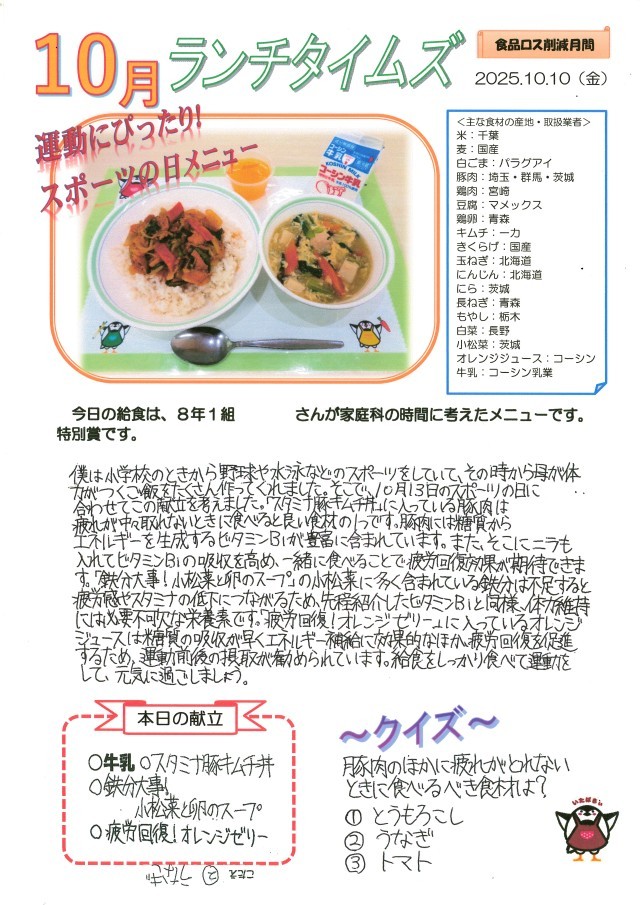 10月ランチタイムズ
食品ロス削減月間
2025.10.10（金）
運動にぴったり!
スポーツの日メニュー
コーシン牛乳
KOSHIN MILK
コーシン牛乳
＜主な食材の産地・取扱業者＞
米：千葉
麦：国産
白ごま：パラグアイ
豚肉：埼玉・群馬・茨城
鶏肉：宮崎
豆腐：マメックス
鶏卵：青森
キムチ：一力
きくらげ：国産
玉ねぎ：北海道
にんじん：北海道
にら：茨城
長ねぎ：青森
もやし：栃木
白菜：長野
小松菜：茨城
オレンジジュース：コーシン
牛乳：コーシン乳業
今日の給食は、８年１組　　　　さんが家庭科の時間に考えたメニューです。
特別賞です。
僕は小学校のときから野球や水泳などのスポーツをしていて、その時から母が体
力がつくご飯をたくさん作ってくれました。そこで、10月13日のスポーツの日に
合わせてこの献立を考えました。「スタミナ豚キムチ丼」に入っている豚肉は
疲れが中々取れないときに食べると良い食材の1つです。豚肉には糖質から
エネルギーを生成するビタミンB1が豊富に含まれています。また、そこにニラも
入れてビタミンB1の吸収を高め、一緒に食べることで疲労回復効果が期待できま
す。「鉄分大事！小松菜と卵のスープ」の小松菜に多く含まれている鉄分は不足すると
疲労感やスタミナの低下につながるため、先程紹介したビタミンB1と同様、体力維持
には必要不可欠な栄養素です。「疲労回復！オレンジゼリー」に入っているオレンジ
ジュースは糖質の吸収が早くエネルギー補給に効果的なほか、疲労回復を促進
するため、運動前後の摂取が勧められています。給食をしっかり食べて運動を
して、元気に過ごしましょう。
本日の献立
○牛乳 ○スタミナ豚キムチ丼
○鉄分大事！
小松菜と卵のスープ
○疲労回復！オレンジゼリー
～クイズ～
豚肉のほかに疲れがとれない
ときに食べるべき食材は？
① とうもろこし
② うなぎ
③ トマト
いたばし
こたえ ② うなぎ